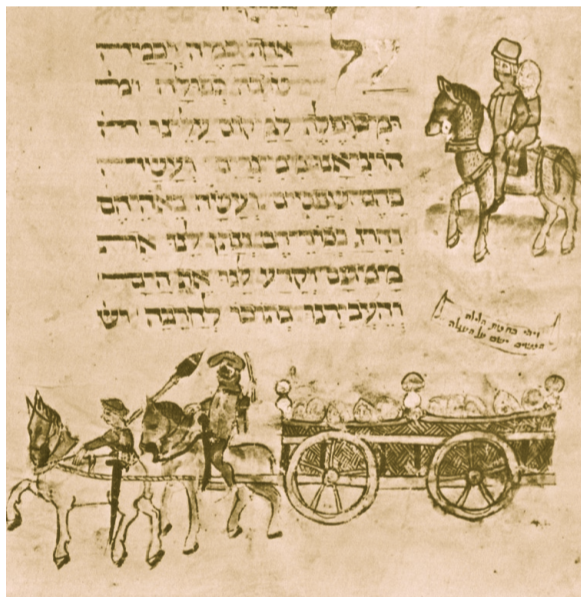 על אחת כמה וכמה
טובה כפולה
ומכופלת למקום עלינו
הוציאנו ממצרים ועשה
בהם שפטים ועשה באלהיהם
והרג בכוריהם ונתן לנו את
ממונם וקרע לנו את הים
והעבירנו בתוכו לחרבה
ויהי בחצות הלילה
על העגלה